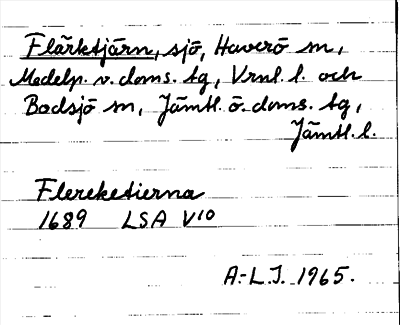 Flärktjärn, sjö, Haverö sn,
Medelp. v. doms. tg, Vrnl. l. och
Bodsjö sn, Jämtl. ö. doms. tg,
Jämtl. l.
Flereketierna
1689 LSA V10
A.-L.J. 1965.